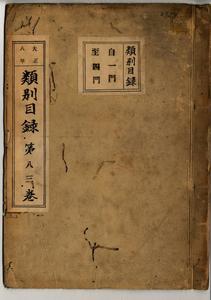 類別目録
自一門
至四門
大正
八年
類別目録
第八三巻